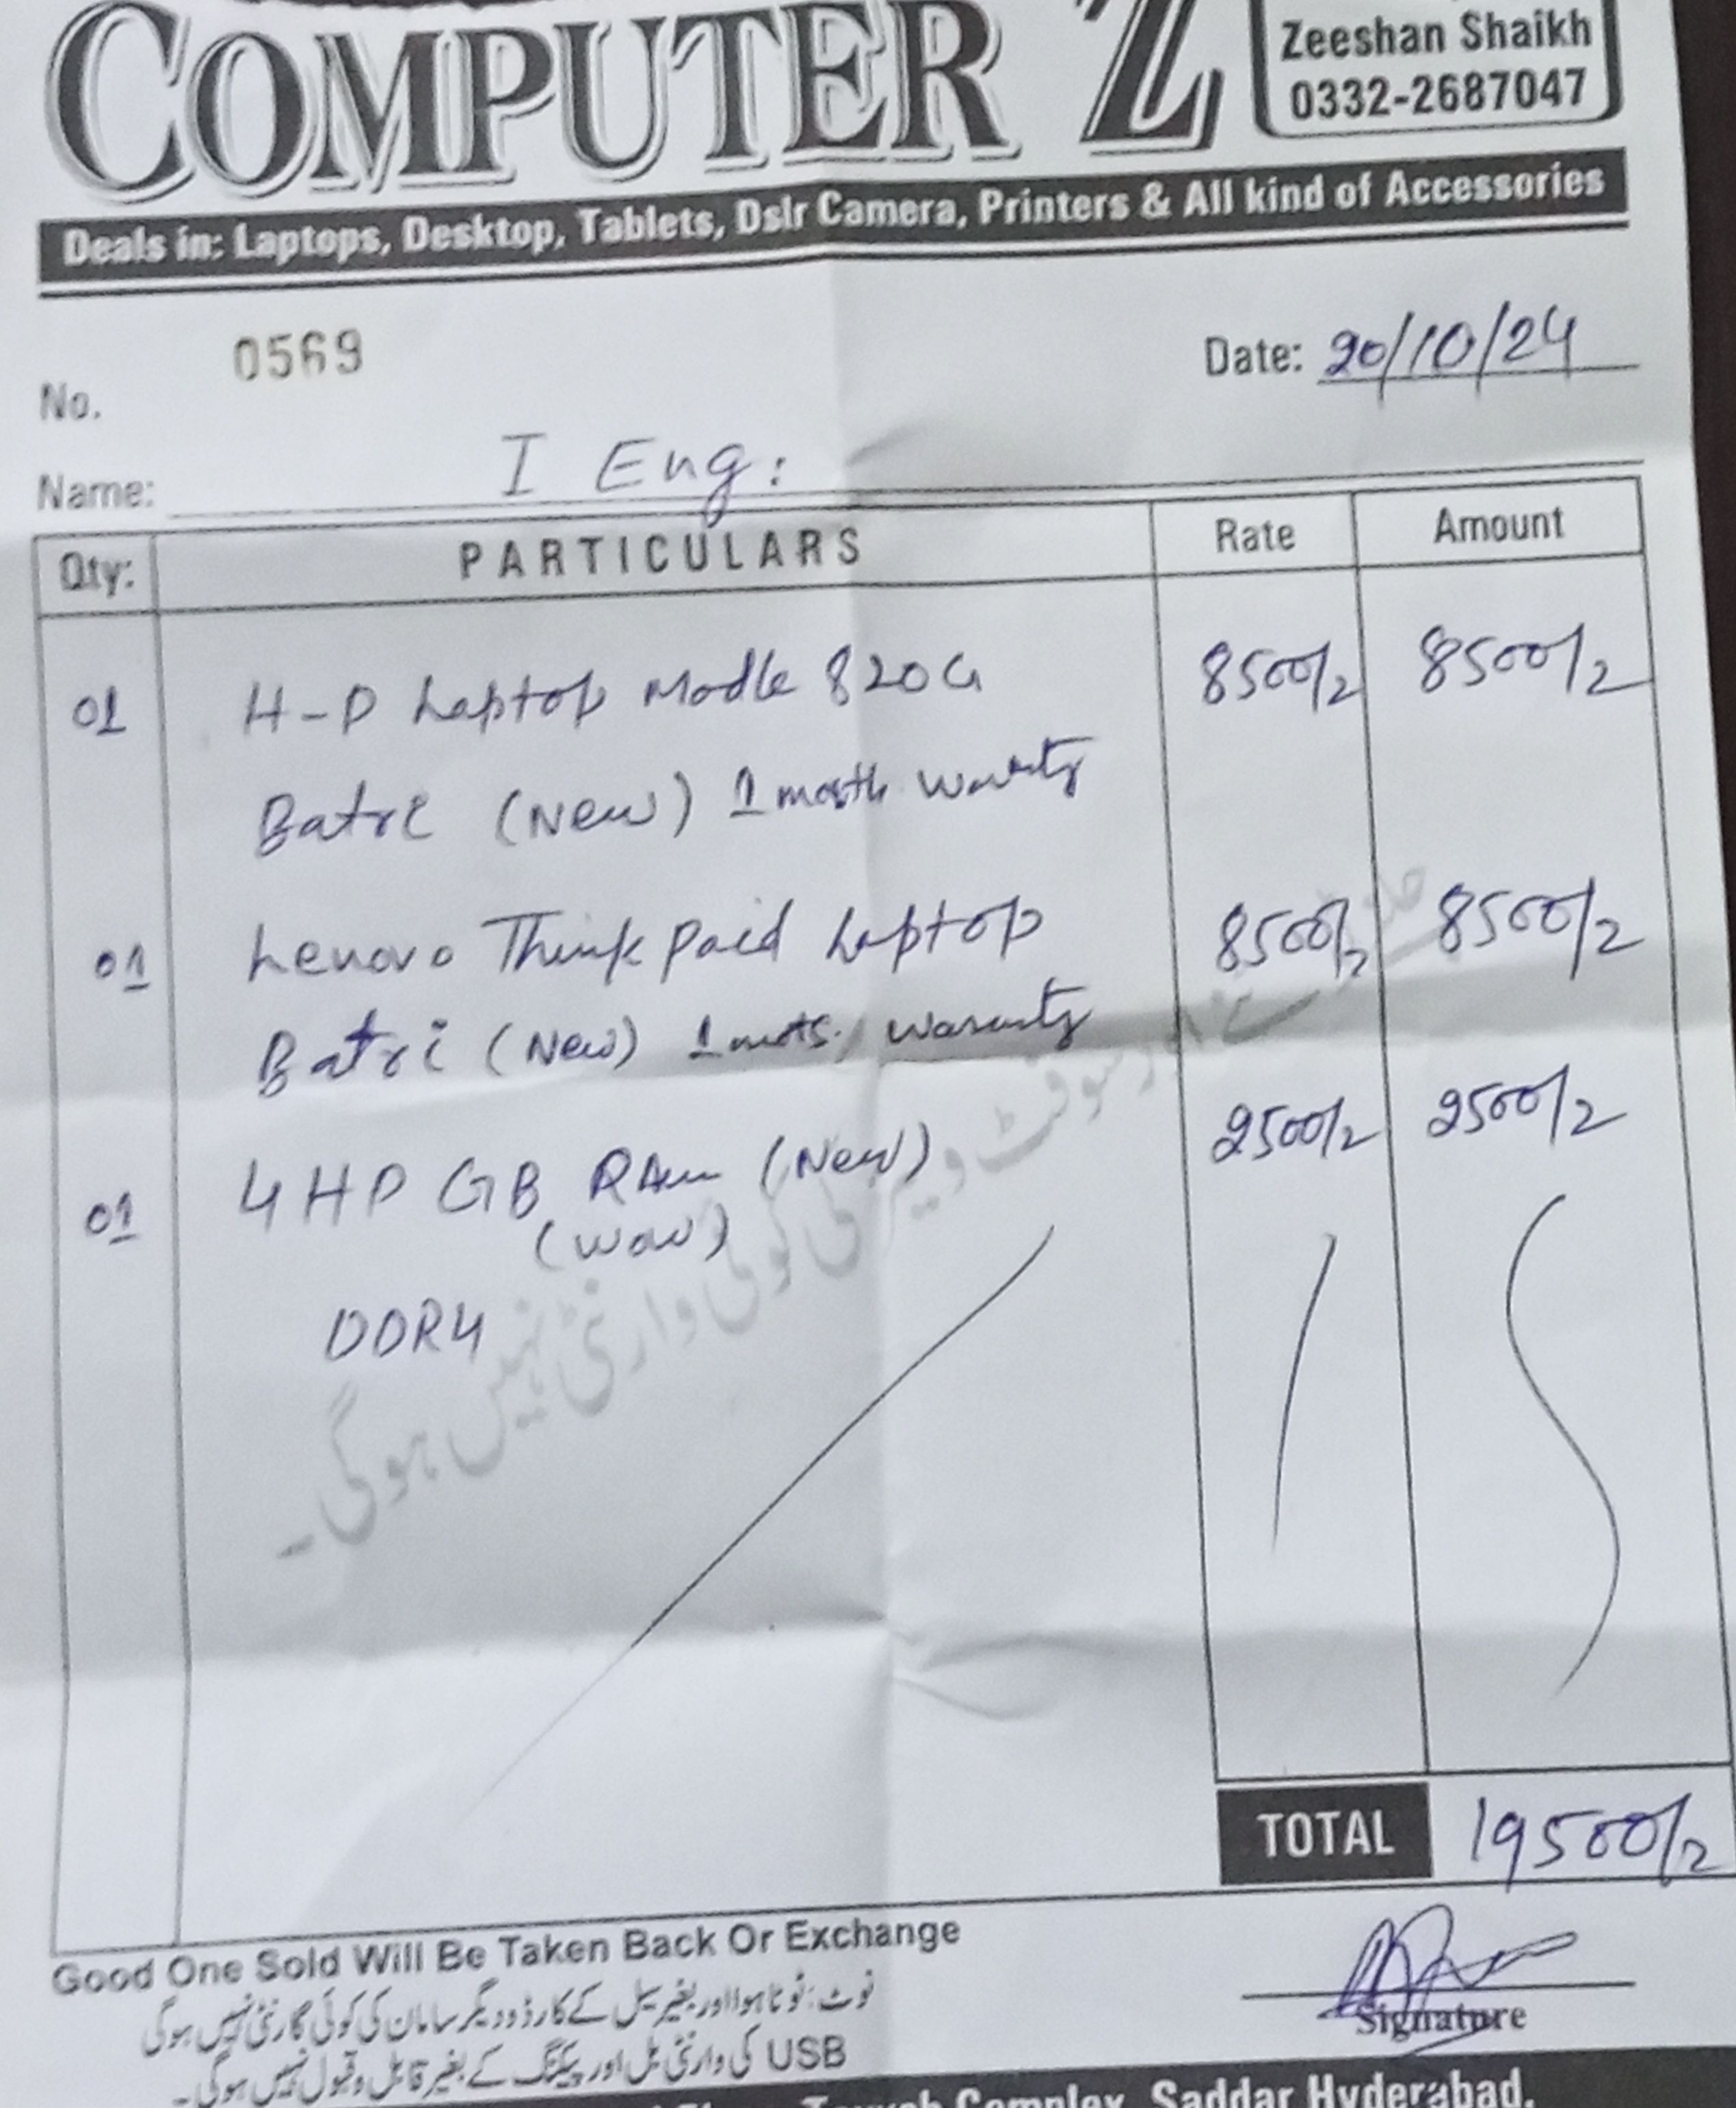 COMPUTER Z
Zeeshan Shaikh
0332-2687047
Deals in: Laptops, Desktop, Tablets, Dslr Camera, Printers & All kind of Accessories
No. 0569
Date: 20/10/24
Name: I Eng:
Qty: PARTICULARS Rate Amount
01 H-P Laptop Modle 820G 8500/2 8500/2
Batri (New) 1 month warnty
01 Lenovo Think paid Laptop 8500/2 8500/2
Batri (New) 1 mots. warunty
01 4 HP GB RAm (New) 2500/2 2500/2
(wow)
DDR4
سوفٹ ویئر کی کوئی وارنٹی نہیں ہوگی۔
TOTAL 19500/2
Good One Sold Will Be Taken Back Or Exchange
نوٹ: ٹوٹا ہوا اور بغیر سیل کے کارڈ و دیگر سامان کی کوئی گارنٹی نہیں ہوگی
USB کی وارنٹی بل اور پیکنگ کے بغیر قابل وقبول نہیں ہوگی۔
Signature
Complex, Saddar Hyderabad.